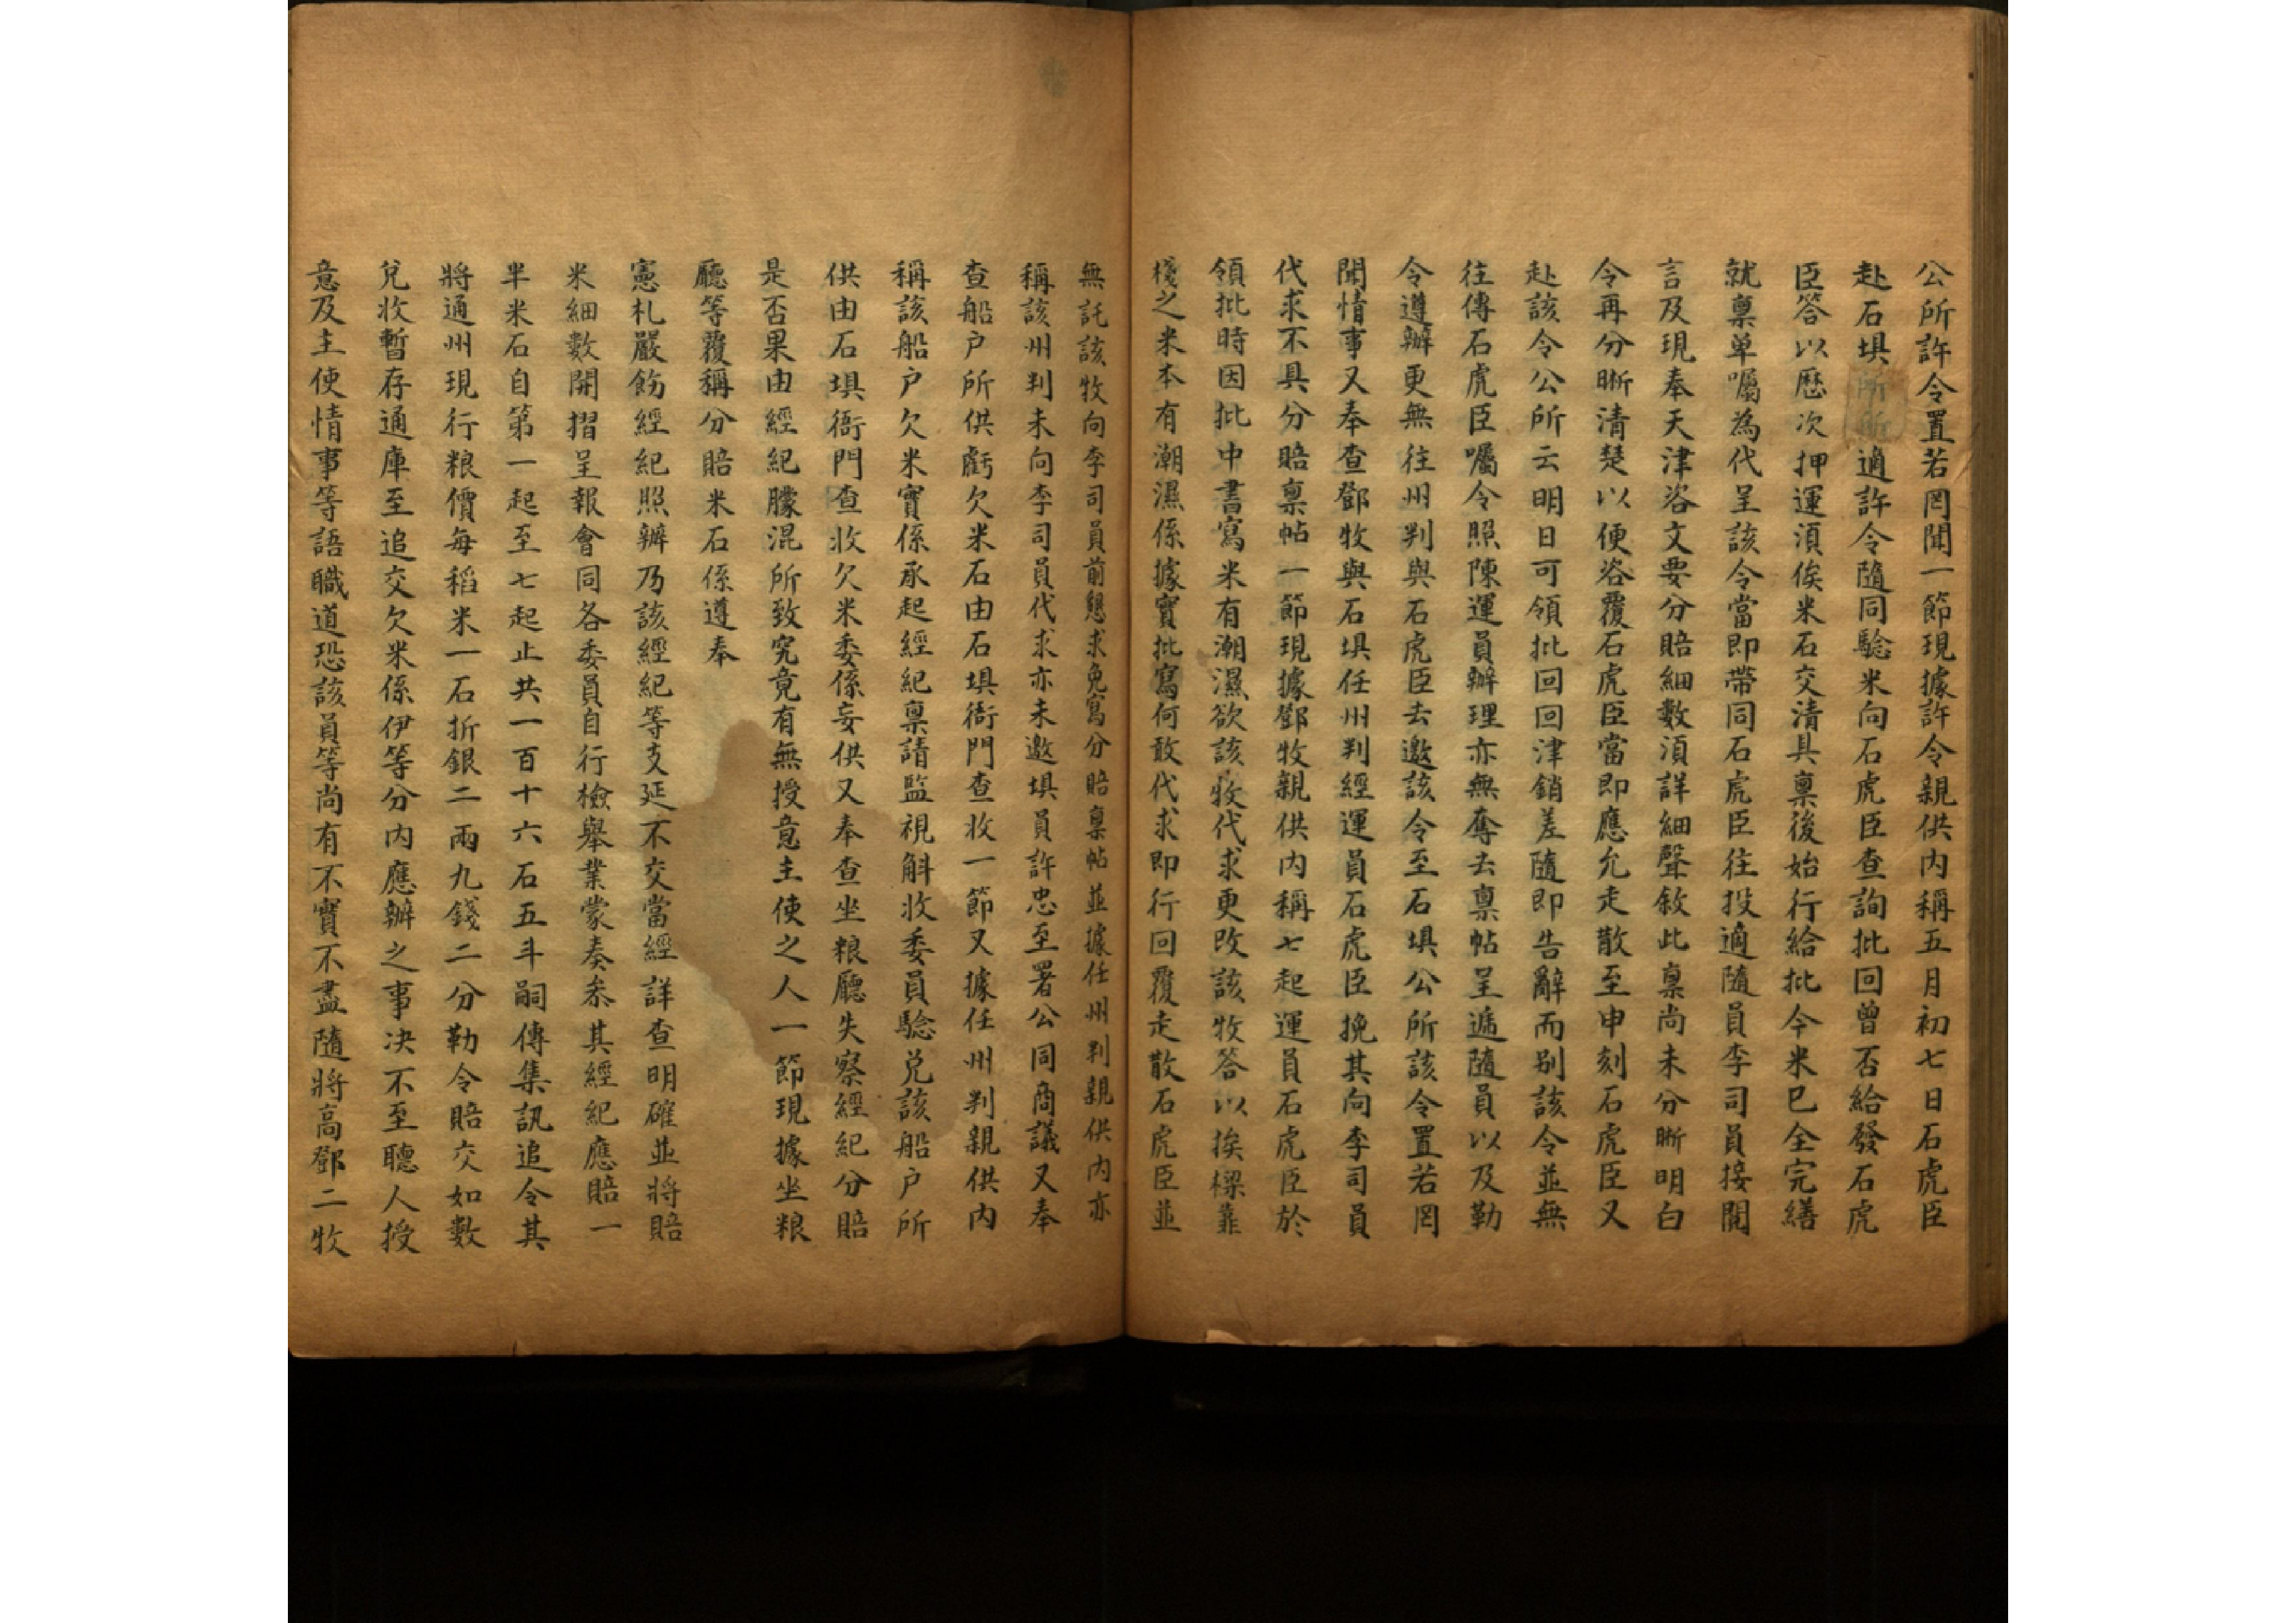 公所許令置若罔聞一節現據許令親供内稱五月初七日石虎臣
赴石埧所所適許令隨同驗米向石虎臣查詢批回曾否給發石虎
臣答以歷次押運須俟米石交清具稟後始行給批今米已全完繕
就稟單囑為代呈該令當即帶同石虎臣往投適隨員李司員接閱
言及現奉天津咨文要分賠細數須詳細聲敘此稟尚未分晰明白
令再分晰清楚以便咨覆石虎臣當即應允走散至申刻石虎臣又
赴該令公所云明日可領批回回津銷差隨即告辭而别該令並無
往傳石虎臣囑令照陳運員辦理亦無奪去稟帖呈遞隨員以及勒
令遵辦更無往州判與石虎臣去邀該令至石埧公所該令置若罔
聞情事又奉查鄧牧與石埧任州判經運員石虎臣挽其向李司員
代求不具分賠稟帖一節現據鄧牧親供内稱七起運員石虎臣於
領批時因批中書寫米有潮濕欲該牧代求更改該牧答以挨樑靠
棧之米本有潮濕係據實批寫何敢代求即行回覆走散石虎臣並
無託該牧向李司員前懇求免寫分賠稟帖並據任州判親供内亦
稱該州判未向李司員代求亦未邀埧員許忠至署公同商議又奉
查船户所供虧欠米石由石埧衙門查收一節又據任州判親供内
稱該船户欠米實係承起經紀稟請監視斛收委員驗兑該船户所
供由石埧衙門查收欠米委係妄供又奉查坐粮廳失察經紀分賠
是否果由經紀朦混所致究竟有無授意主使之人一節現據坐粮
廳等覆稱分賠米石係遵奉
憲札嚴飭經紀照辦乃該經紀等支延不交當經詳查明確並將賠
米細數開摺呈報會同各委員自行檢舉業蒙奏叅其經紀應賠一
半米石自第一起至七起止共一百十六石五斗嗣傳集訊追令其
將通州現行粮價每稻米一石折銀二兩九錢二分勒令賠交如數
兑收暫存通庫至追交欠米係伊等分内應辦之事决不至聽人授
意及主使情事等語職道恐該員等尚有不實不盡隨將高鄧二牧